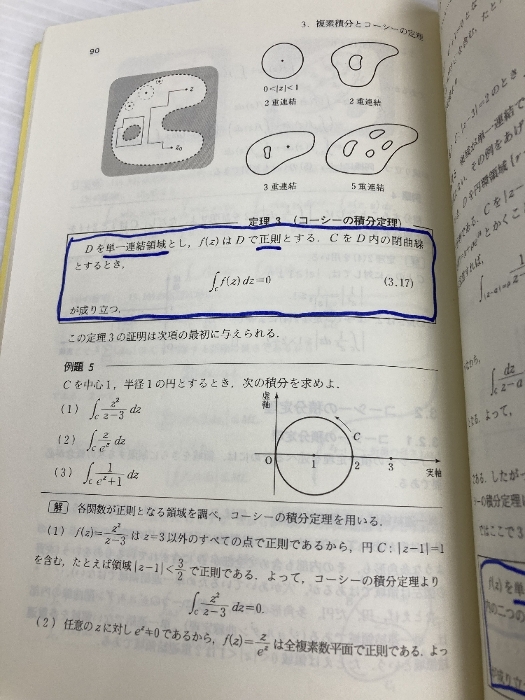 90
3. 複素積分とコーシーの定理
z
z₀
0<|z|<1
2重連結
2重連結
3重連結
5重連結
定理 3 (コーシーの積分定理)
Dを単一連結領域とし, f(z)はDで正則とする. CをD内の閉曲線
とするとき,
∫_C f(z) dz=0 (3.17)
が成り立つ.
この定理3の証明は次項の最初に与えられる.
例題 5
Cを中心1, 半径1の円とするとき, 次の積分を求めよ.
(1) ∫_C z²/(z−3) dz
(2) ∫_C z/e^z dz
(3) ∫_C 1/(e^z+1) dz
虚軸
C
O 1 2 3 実軸
[解] 各関数が正則となる領域を調べ, コーシーの積分定理を用いる.
(1) f(z)=z²/(z−3) は z=3 以外のすべての点で正則であるから, 円 C:|z−1|=1
を含む, たとえば領域|z−1|<3/2 で正則である. よって, コーシーの積分定理より
∫_C z²/(z−3) dz=0.
(2) 任意のzに対し e^z≠0 であるから, f(z)=z/e^z は全複素数平面で正則である. よっ